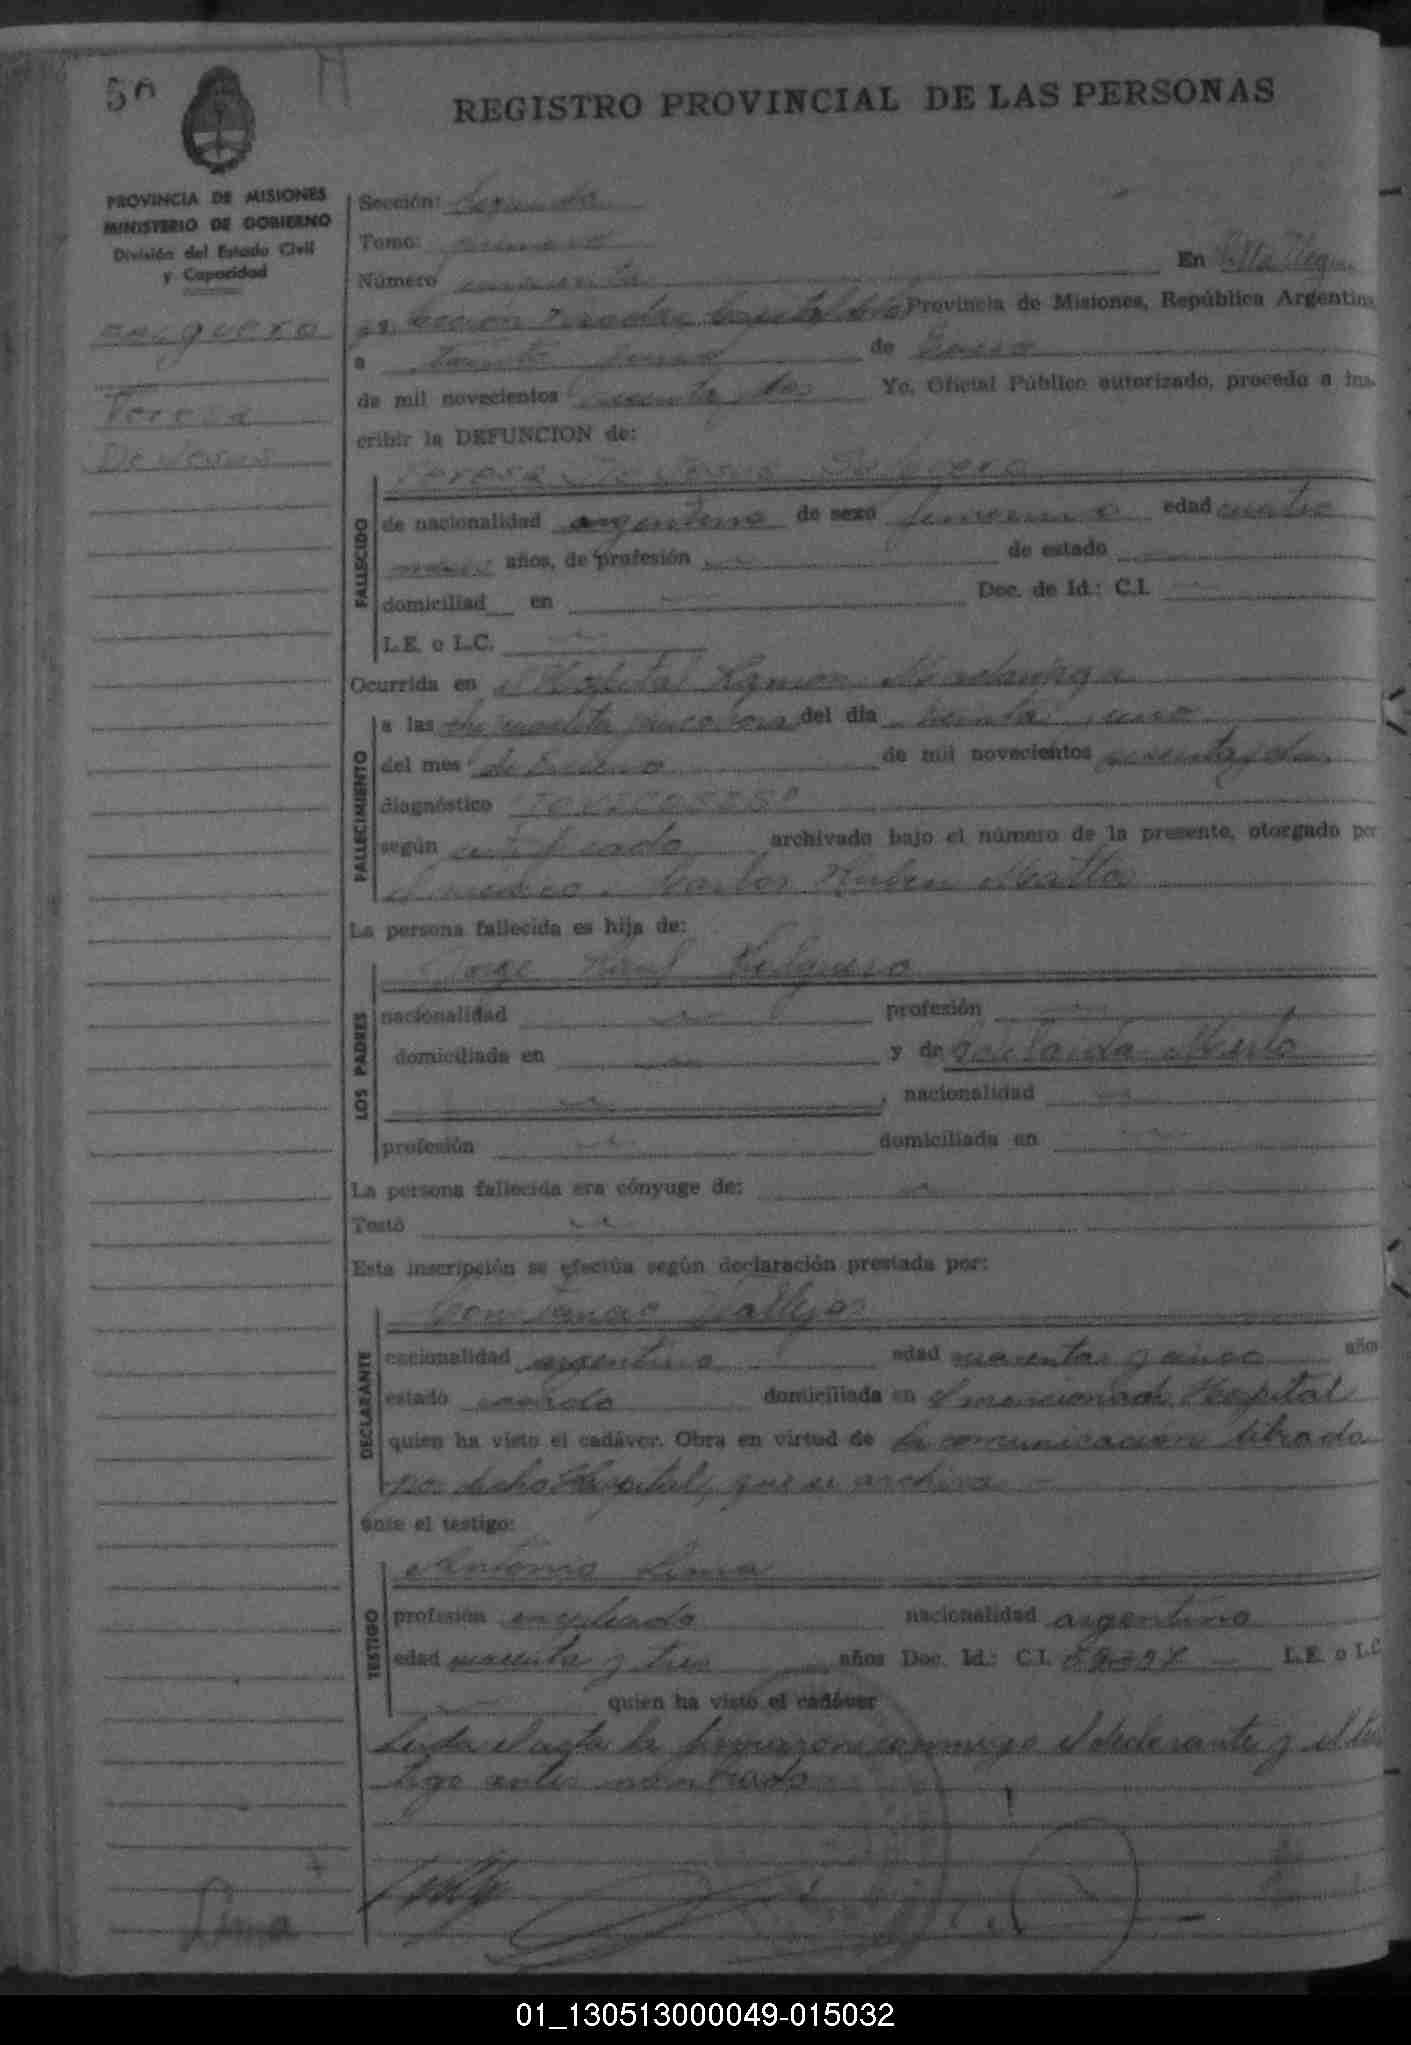 50
REGISTRO PROVINCIAL DE LAS PERSONAS
PROVINCIA DE MISIONES
MINISTERIO DE GOBIERNO
División del Estado Civil
y Capacidad
Teresa
De Jesus
Sección: Segunda
Tomo: primero
Número cincuenta En Villa
Provincia de Misiones, República Argentina
a treinta uno de Enero
de mil novecientos sesenta y dos Yo, Oficial Público autorizado, procedo a ins-
cribir la DEFUNCION de:
Teresa De Jesus
FALLECIDO
de nacionalidad argentina de sexo femenino edad cuatro
meses años, de profesión de estado
domiciliad en Doc. de Id.: C.I.
L.E. o L.C.
Ocurrida en el Hospital Ramon Madariaga
FALLECIMIENTO
a las del día treinta uno
del mes de Enero de mil novecientos sesenta y dos
diagnóstico "Toxicosis"
según certificado archivado bajo el número de la presente, otorgado por
el medico. Carlos Ruben Mattos
La persona fallecida es hija de:
LOS PADRES
Jorge Raul
nacionalidad profesión
domiciliada en y de Adelaida Merlo
, nacionalidad
profesión domiciliada en
La persona fallecida era cónyuge de:
Testó
Esta inscripción se efectúa según declaración prestada por:
DECLARANTE
Constancio Vallejos
nacionalidad argentino edad cuarenta y cinco años
estado casado domiciliada en el mencionado Hospital
quien ha visto el cadáver. Obra en virtud de la comunicación librada
por dicho Hospital, que se archiva
ante el testigo:
TESTIGO
Antonio Lima
profesión empleado nacionalidad argentino
edad cuarenta y tres años Doc. Id.: C.I. L.E. o L.C
quien ha visto el cadáver
Leida el acta la firmaron conmigo el declarante y el tes
tigo antes nombrado
Lima
01_130513000049-015032